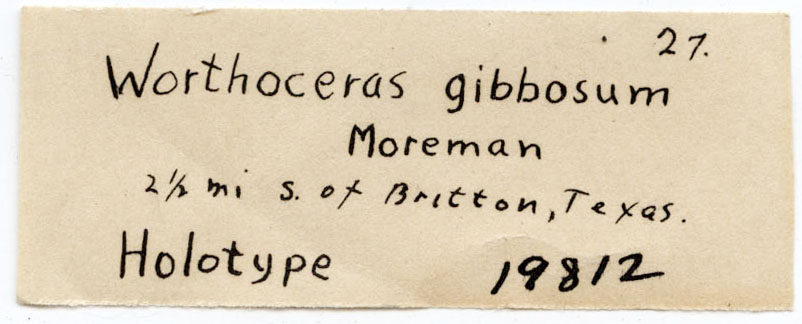 27.
Worthoceras gibbosum
Moreman
2½ mi s. of Britton, Texas.
Holotype 19812